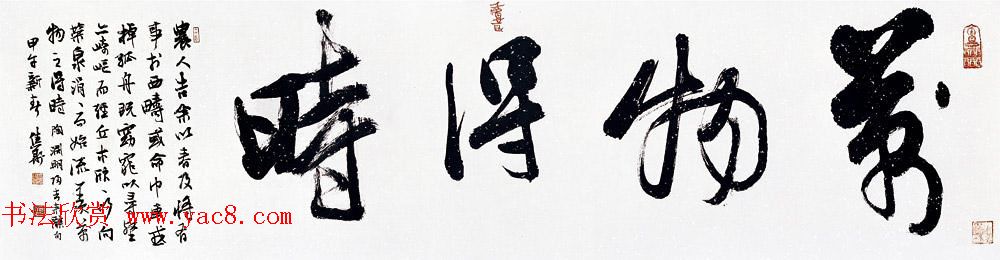 萬物得時
農人告余以春及将有
事於西疇或命巾車或
棹孤舟既窈窕以尋壑
亦崎岖而經丘木欣々以向
榮泉涓々而始流羡萬
物之得時 陶渊明歸去来辭句
甲午新春
书法欣赏 www.yac8.com